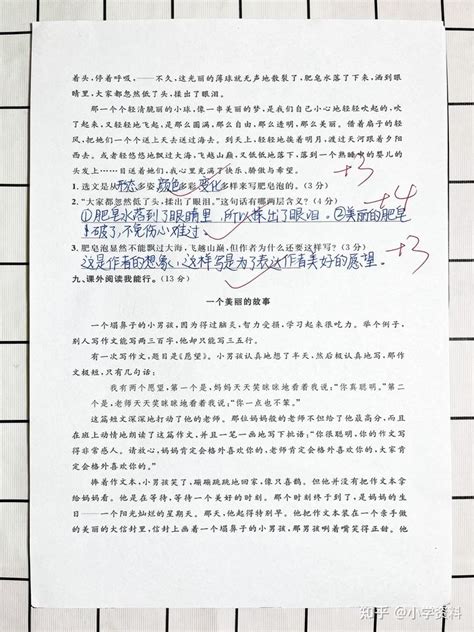 着头,停着呼吸,——不久,这光丽的薄球就无声地散裂了,肥皂水落了下来,洒到眼
睛里,大家都忽然低了头,揉出了眼泪。
那一个个轻清脆丽的小球,像一串美丽的梦,是我们自己小心地轻轻吹起的,吹
了起来,又轻轻地飞起,是那么圆满,那么自由,那么透明,那么美丽。借着扇子的轻
风,把她们一个个送上天去送过海去。到天上,轻轻地挨着明月,渡过天河跟着夕阳
西去。或者轻悠悠地飘过大海,飞越山巅,又低低地落下,落到一个熟睡中的婴儿的
头发上……目送着她们,我心里充满了快乐、骄傲与希望。
+3
1.选文是从形态多姿 颜色多彩 变化多样来写肥皂泡的。(3分)
2.“大家都忽然低了头,揉出了眼泪。”这句话有哪两层含义?(4分)
+4
①肥皂水落到了眼睛里,所以揉出了眼泪。②美丽的肥皂
破了,不免伤心难过。
3.肥皂泡显然不能飘过大海,飞越山巅,但作者为什么还要这样写?(3分)
+3
这是作者的想象,这样写是为了表达作者美好的愿望。
九、课外阅读我能行。(13分)
一个美丽的故事
一个塌鼻子的小男孩,因为得过脑炎,智力受损,学习起来很吃力。举个例子,
别人写作文能写两三百字,他却只能写三五行。
有一次写作文,题目是《愿望》。小男孩认真地想了半天,然后极认真地写,那作
文极短,只有几句话:
我有两个愿望,第一个是,妈妈天天笑眯眯地看着我说:“你真聪明。”第二
个是,老师天天笑眯眯地看着我说:“你一点也不笨。”
这篇短文深深地打动了他的老师。那位妈妈般的老师不但给了他最高分,而且
在班上动情地朗读了这篇作文,并且一笔一画地写下批语:“你很聪明,你的作文写
得非常感人。请放心,妈妈肯定会格外喜欢你的,老师肯定会格外喜欢你的,大家肯
定会格外喜欢你的。”
捧着作文本,小男孩笑了,蹦蹦跳跳地回家,像只喜鹊。但他并没有把作文本拿
给妈妈看。他是在等待,等待一个美好的时刻。那个时刻终于到了,是妈妈的生
日——一个阳光灿烂的星期天。那天,他起得特别早。他把作文本装在一个亲手做
的美丽的大信封里,信封上画着一个塌鼻子的小男孩,那男孩咧着嘴笑得正甜。他
知乎 @小学资料